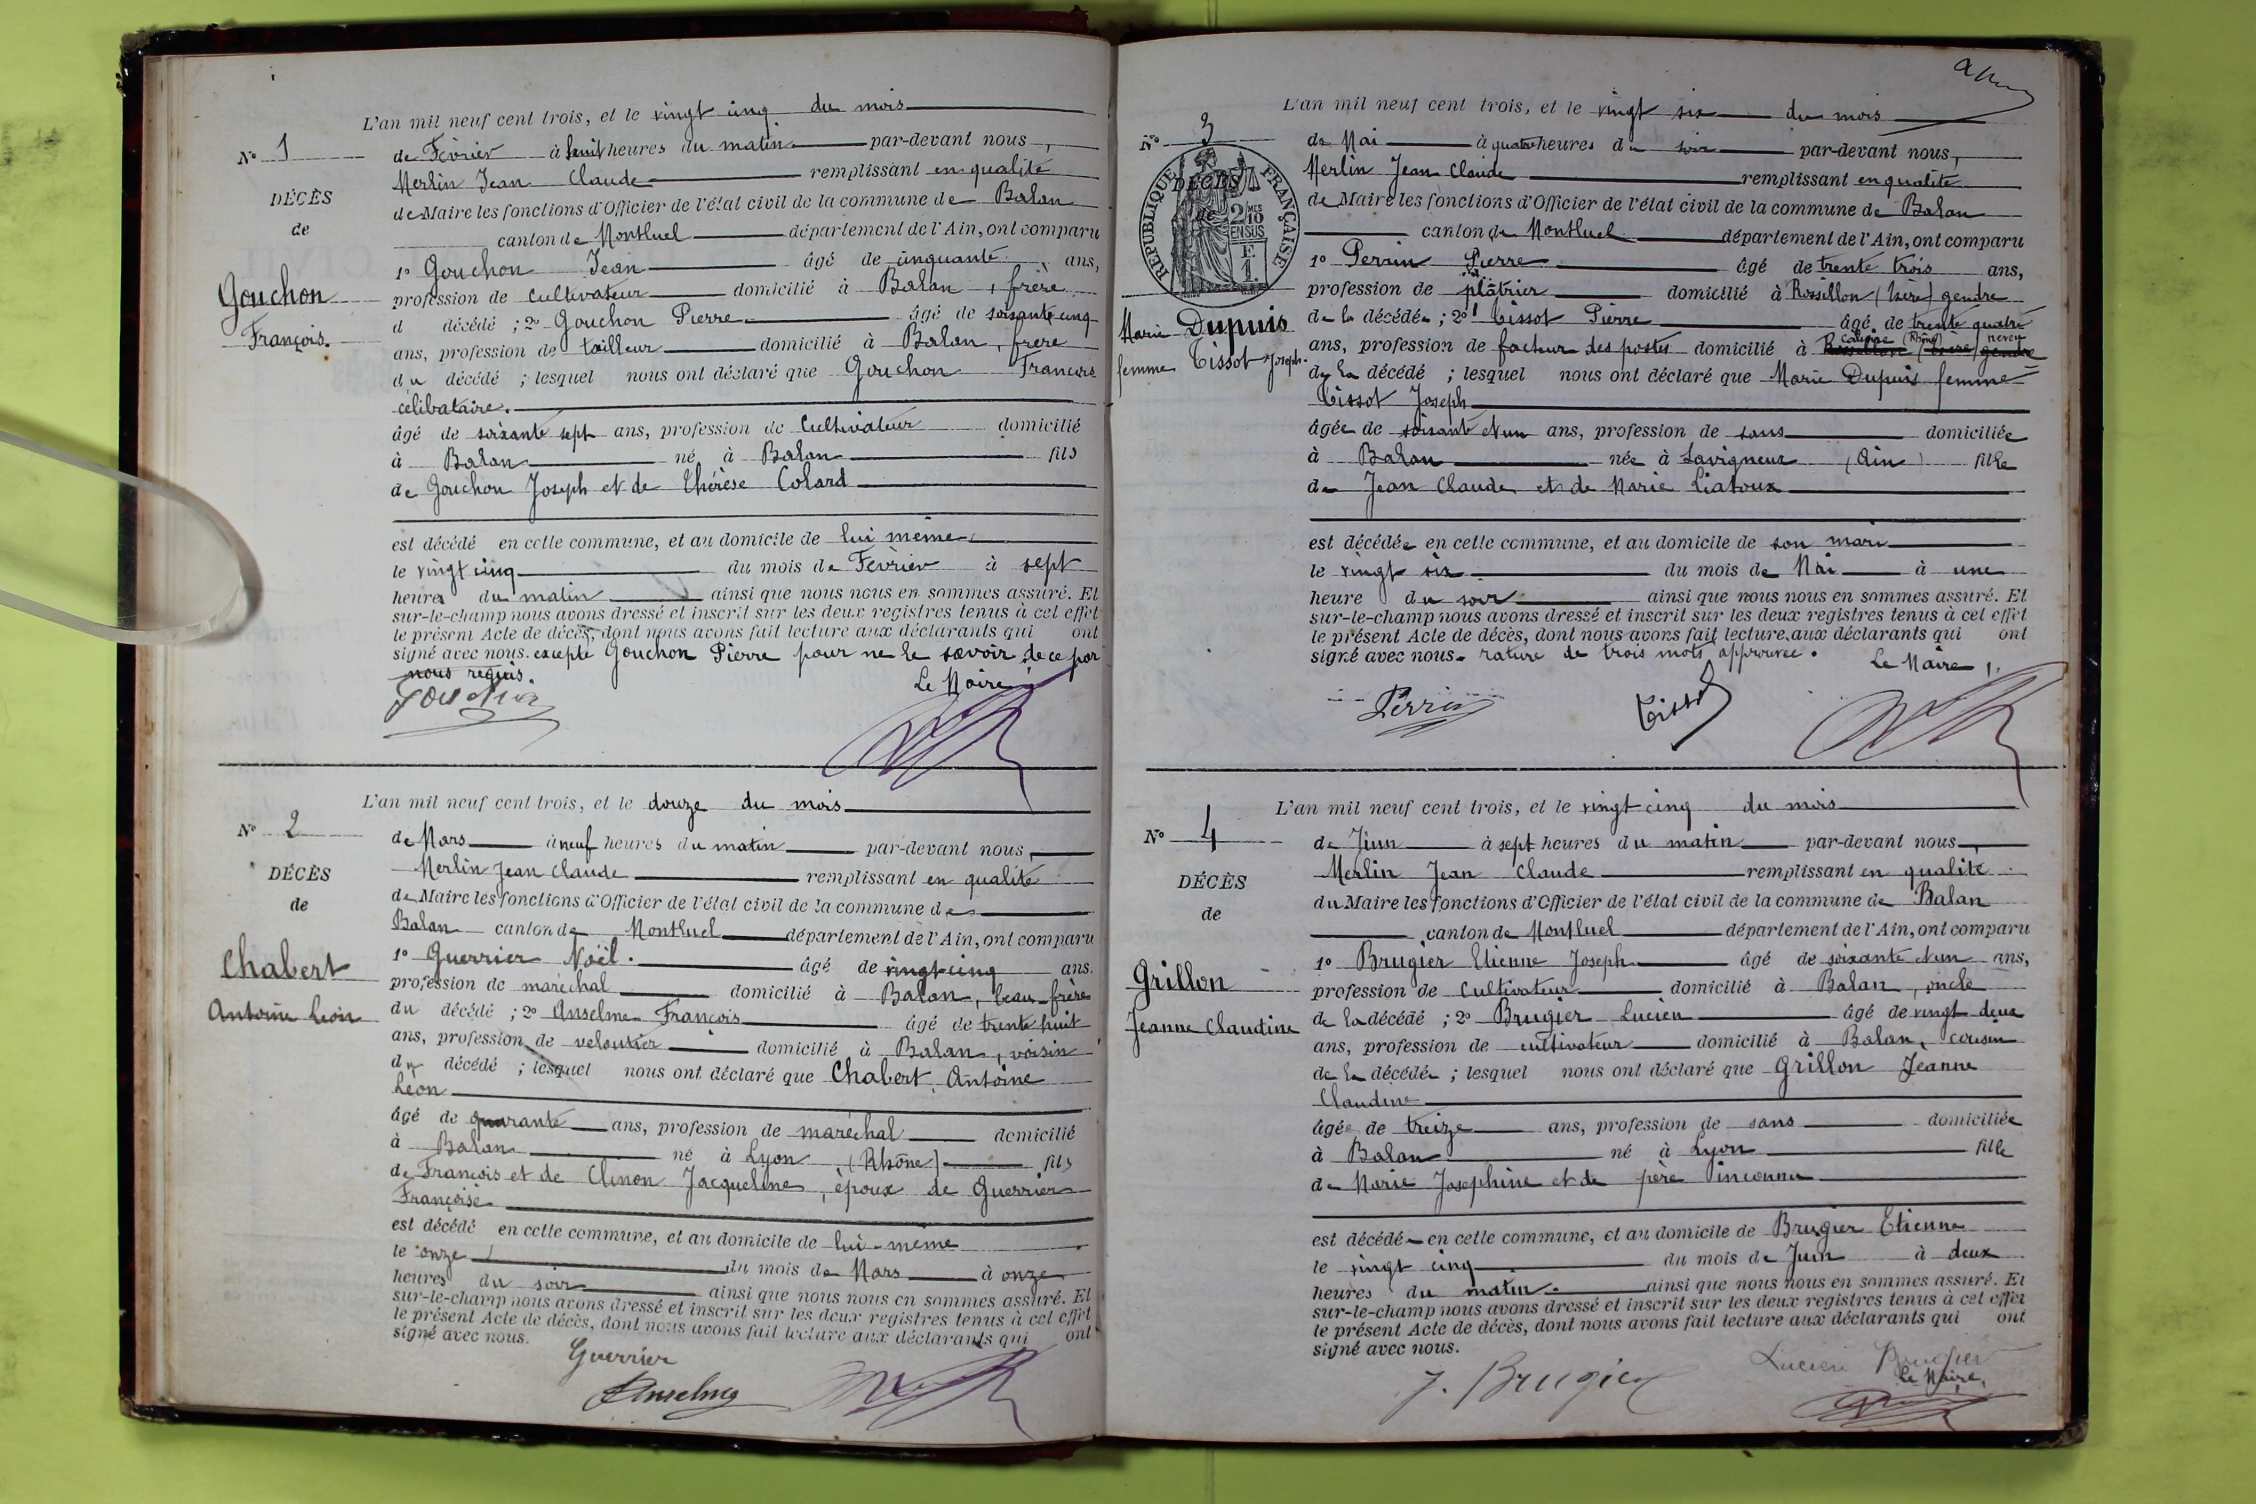 L'an mil neuf cent trois, et le vingt cinq du mois
N° 1
de Fèvrier à huit heures du matin par-devant nous,
Merlin Jean Claude remplissant en qualité
DÉCÈS
de Maire les fonctions d'Officier de l'état civil de la commune de Balan
de
canton de Montluel département de l'Ain, ont comparu
1° Gouchon Jean âgé de cinquante ans,
Gouchon
profession de cultivateur domicilié à Balan, frère
François.
d décédé ; 2° Gouchon Pierre âgé de soixante cinq
ans, profession de tailleur domicilié à Balan, frère
du décédé ; lesquel nous ont déclaré que Gouchon François
célibataire.
âgé de soixante sept ans, profession de Cultivateur domicilié
à Balan né à Balan fils
de Gouchon Joseph et de Thérèse Colard
est décédé en cette commune, et au domicile de lui même
le vingt cinq du mois de Fèvrier à sept
heures du matin ainsi que nous nous en sommes assuré. Et
sur-le-champ nous avons dressé et inscrit sur les deux registres tenus à cet effet
le présent Acte de décès, dont nous avons fait lecture aux déclarants qui ont
signé avec nous. excepté Gouchon Pierre pour ne le savoir de ce par
nous requis.
Le Maire
Gouchon
L'an mil neuf cent trois, et le douze du mois
N° 2
de Mars à neuf heures du matin par-devant nous,
Merlin Jean Claude remplissant en qualité
DÉCÈS
de Maire les fonctions d'Officier de l'état civil de la commune de
de
Balan canton de Montluel département de l'Ain, ont comparu
1° Guerrier Noël. âgé de vingt-cinq ans.
Chabert
profession de maréchal domicilié à Balan, beau-frère
Antoine Leon
du décédé ; 2° Anselme François âgé de trente huit
ans, profession de veloutier domicilié à Balan, voisin
du décédé ; lesquel nous ont déclaré que Chabert Antoine
Léon
âgé de quarante ans, profession de maréchal domicilié
à Balan né à Lyon (Rhône) fils
de François et de Clinon Jacqueline, époux de Guerrier
Françoise
est décédé en cette commune, et au domicile de lui-même
le onze du mois de Mars à onze
heures du soir ainsi que nous nous en sommes assuré. Et
sur-le-champ nous avons dressé et inscrit sur les deux registres tenus à cet effet
le présent Acte de décès, dont nous avons fait lecture aux déclarants qui ont
signé avec nous.
Guerrier
Anselme
L'an mil neuf cent trois, et le vingt six du mois
N° 3
de Mai à quatre heures du soir par-devant nous,
Merlin Jean Claude remplissant en qualité
RÉPUBLIQUE FRANÇAISE
DÉCÈS
de
2/10 MES
EN SUS
F.
1.
de Maire les fonctions d'Officier de l'état civil de la commune de Balan
canton de Montluel département de l'Ain, ont comparu
1° Perrin Pierre âgé de trente trois ans,
profession de plâtrier domicilié à Rossillon (Isère) gendre
Marie Dupuis
de la décédée ; 2° Tissot Pierre âgé de trente quatre
femme Tissot Joseph.
Caluire (Rhône) neveu
ans, profession de facteur des postes domicilié à Rossillon (Isère) gendre
de la décédé ; lesquel nous ont déclaré que Marie Dupuis femme
Tissot Joseph
âgée de soixante et un ans, profession de sans domiciliée
à Balan née à Savigneux (Ain) fille
de Jean Claude et de Marie Liatoux
est décédée en cette commune, et au domicile de son mari
le vingt six du mois de Mai à une
heure du soir ainsi que nous nous en sommes assuré. Et
sur-le-champ nous avons dressé et inscrit sur les deux registres tenus à cet effet
le présent Acte de décès, dont nous avons fait lecture aux déclarants qui ont
signé avec nous. rature de trois mots approuvée.
Le Maire,
Perrin
Tissot
L'an mil neuf cent trois, et le vingt cinq du mois
N° 4
de Juin à sept heures du matin par-devant nous,
Merlin Jean Claude remplissant en qualité
DÉCÈS
du Maire les fonctions d'Officier de l'état civil de la commune de Balan
de
canton de Montluel département de l'Ain, ont comparu
1° Brugier Etienne Joseph âgé de soixante et un ans,
Grillon
profession de Cultivateur domicilié à Balan, oncle
Jeanne Claudine
de la décédé ; 2° Brugier Lucien âgé de vingt deux
ans, profession de cultivateur domicilié à Balan, cousin
de la décédée ; lesquel nous ont déclaré que Grillon Jeanne
Claudine
âgée de treize ans, profession de sans domiciliée
à Balan né à Lyon fille
de Marie Josephine et de père inconnu
est décédée en cette commune, et au domicile de Brugier Etienne
le vingt cinq du mois de Juin à deux
heures du matin. ainsi que nous nous en sommes assuré. Et
sur-le-champ nous avons dressé et inscrit sur les deux registres tenus à cet effet
le présent Acte de décès, dont nous avons fait lecture aux déclarants qui ont
signé avec nous.
J. Brugier
Lucien Brugier
Le Maire,